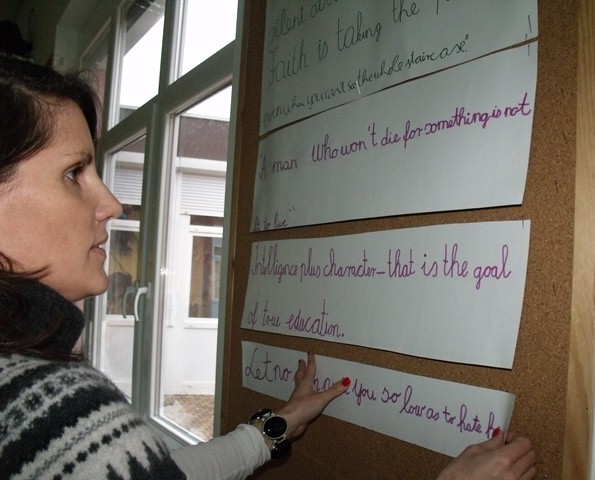 silent
Faith is taking the
even when you can't see the whole staircase"
"A man who won't die for something is not
fit to live"
Intelligence plus character-that is the goal
of true education.
Let no you so low as to hate